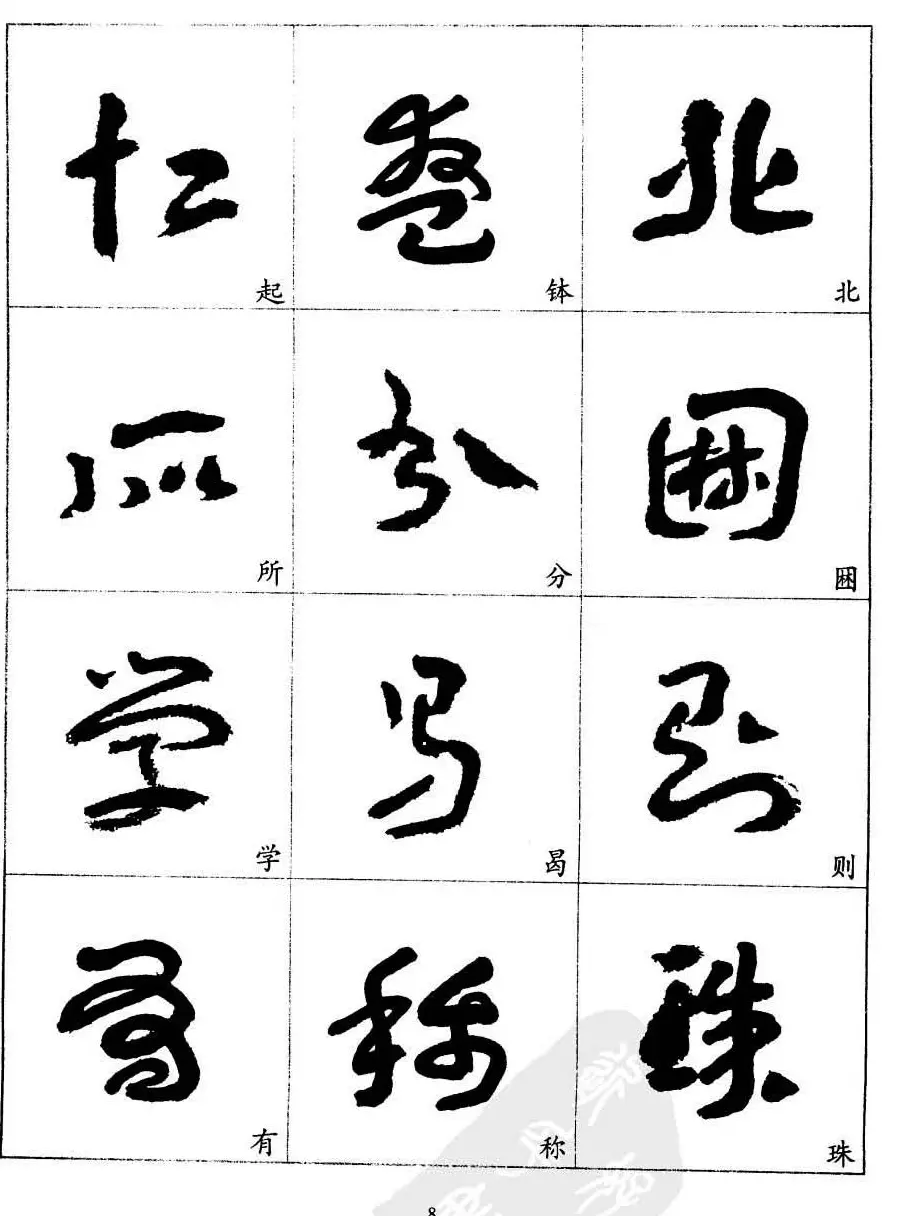 起 钵 北
所 分
学 曷 则
有 称 珠
8